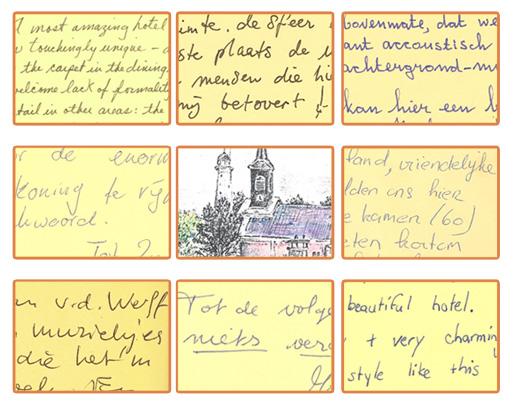 most amazing hotel
touchingly unique -
the carpet in the dining
welcome lack of formality
tail in other areas: the
imte. de sfeer
ste plaats de
mensen die hi
mij betovert !
bovenmate, dat we
ant accoustisch
achtergrond-m
kan hier een
r de enorm
koning te zijn
twoord.
Tot
land, vriendelijke
lden ons hier
e kamer (60)
eten kwam
n v.d. Werff
muziekjes
die het 'm
Tot de volge
niets ver
beautiful hotel.
+ very charmin
style like this